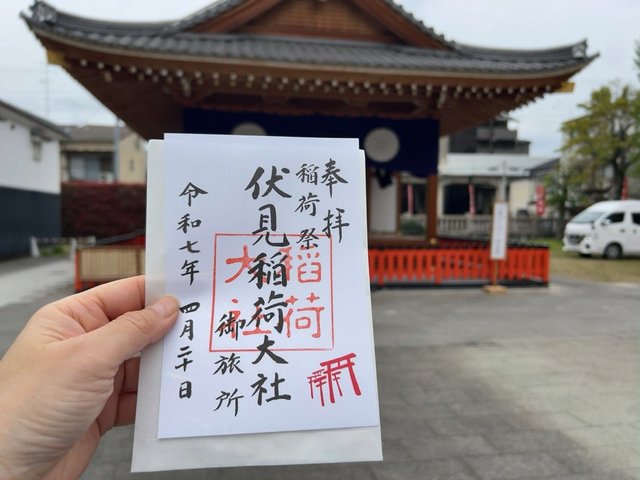 奉拝
稲荷祭
伏見稲荷大社
御旅所
稲荷
大社
令和七年 四月二十日